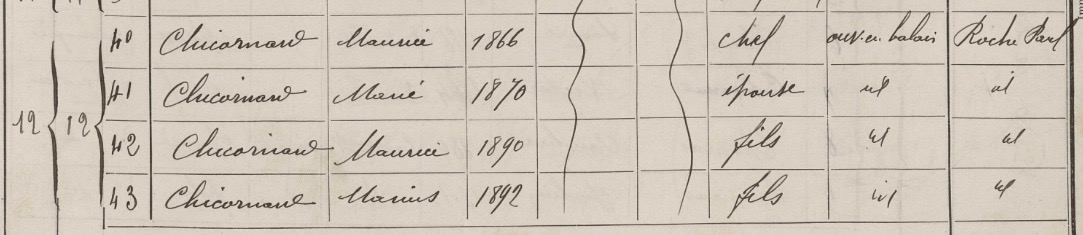 40 Chicornard Maurice 1866 chef ouv. en balais Roche Paul
41 Chicornard Marie 1870 épouse id id
12 12
42 Chicornard Maurice 1890 fils id id
43 Chicornard Marius 1892 fils id id